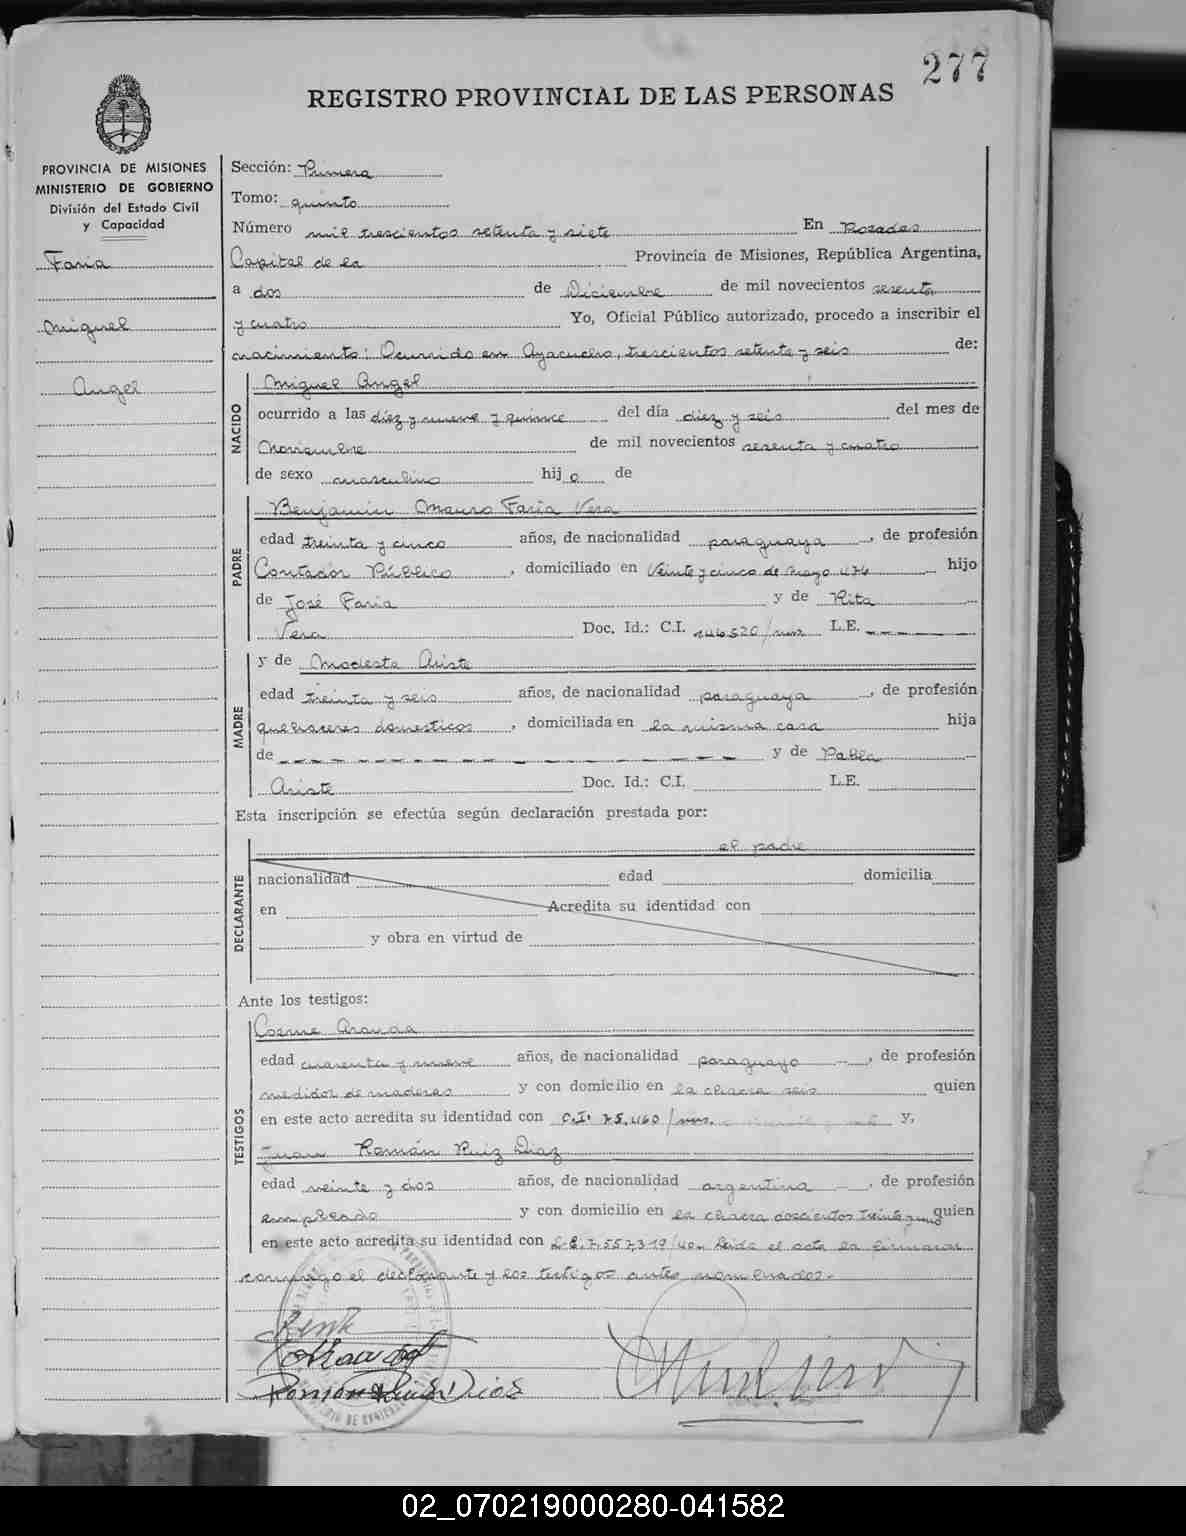 277
REGISTRO PROVINCIAL DE LAS PERSONAS
PROVINCIA DE MISIONES
MINISTERIO DE GOBIERNO
División del Estado Civil
y Capacidad
Faria
Miguel
Angel
Sección: Primera
Tomo: quinto
Número mil trescientos setenta y siete En Posadas
Capital de la Provincia de Misiones, República Argentina,
a dos de Diciembre de mil novecientos sesenta
y cuatro Yo, Oficial Público autorizado, procedo a inscribir el
nacimiento: Ocurrido en Ayacucho, trescientos setenta y seis de:
NACIDO
Miguel Angel
ocurrido a las diez y nueve y quince del día diez y seis del mes de
Noviembre de mil novecientos sesenta y cuatro
de sexo masculino hijo de
PADRE
Benjamin Mauro Faria Vera
edad treinta y cinco años, de nacionalidad paraguaya, de profesión
Contador Público, domiciliado en Veinte y cinco de Mayo 476 hijo
de José Faria y de Rita
Vera Doc. Id.: C.I. 146520/mnes L.E.
MADRE
y de Modesta Ariste
edad treinta y seis años, de nacionalidad paraguaya, de profesión
quehaceres domesticos, domiciliada en la misma casa hija
de y de Pabla
Ariste Doc. Id.: C.I. L.E.
Esta inscripción se efectúa según declaración prestada por:
DECLARANTE
el padre
nacionalidad edad domicilia
en Acredita su identidad con
y obra en virtud de
Ante los testigos:
TESTIGOS
Cosme Aranda
edad cuarenta y nueve años, de nacionalidad paraguayo, de profesión
medidor de maderas y con domicilio en la chacra seis quien
en este acto acredita su identidad con C.I. 75.460/mnes. y,
Juan Román Ruiz Diaz
edad veinte y dos años, de nacionalidad argentina, de profesión
empleado y con domicilio en la chacra doscientos treinta y uno quien
en este acto acredita su identidad con L.E. 7.557.319/40. Leida el acta la firmaron
conmigo el declarante y los testigos antes nombrados.-
02_070219000280-041582